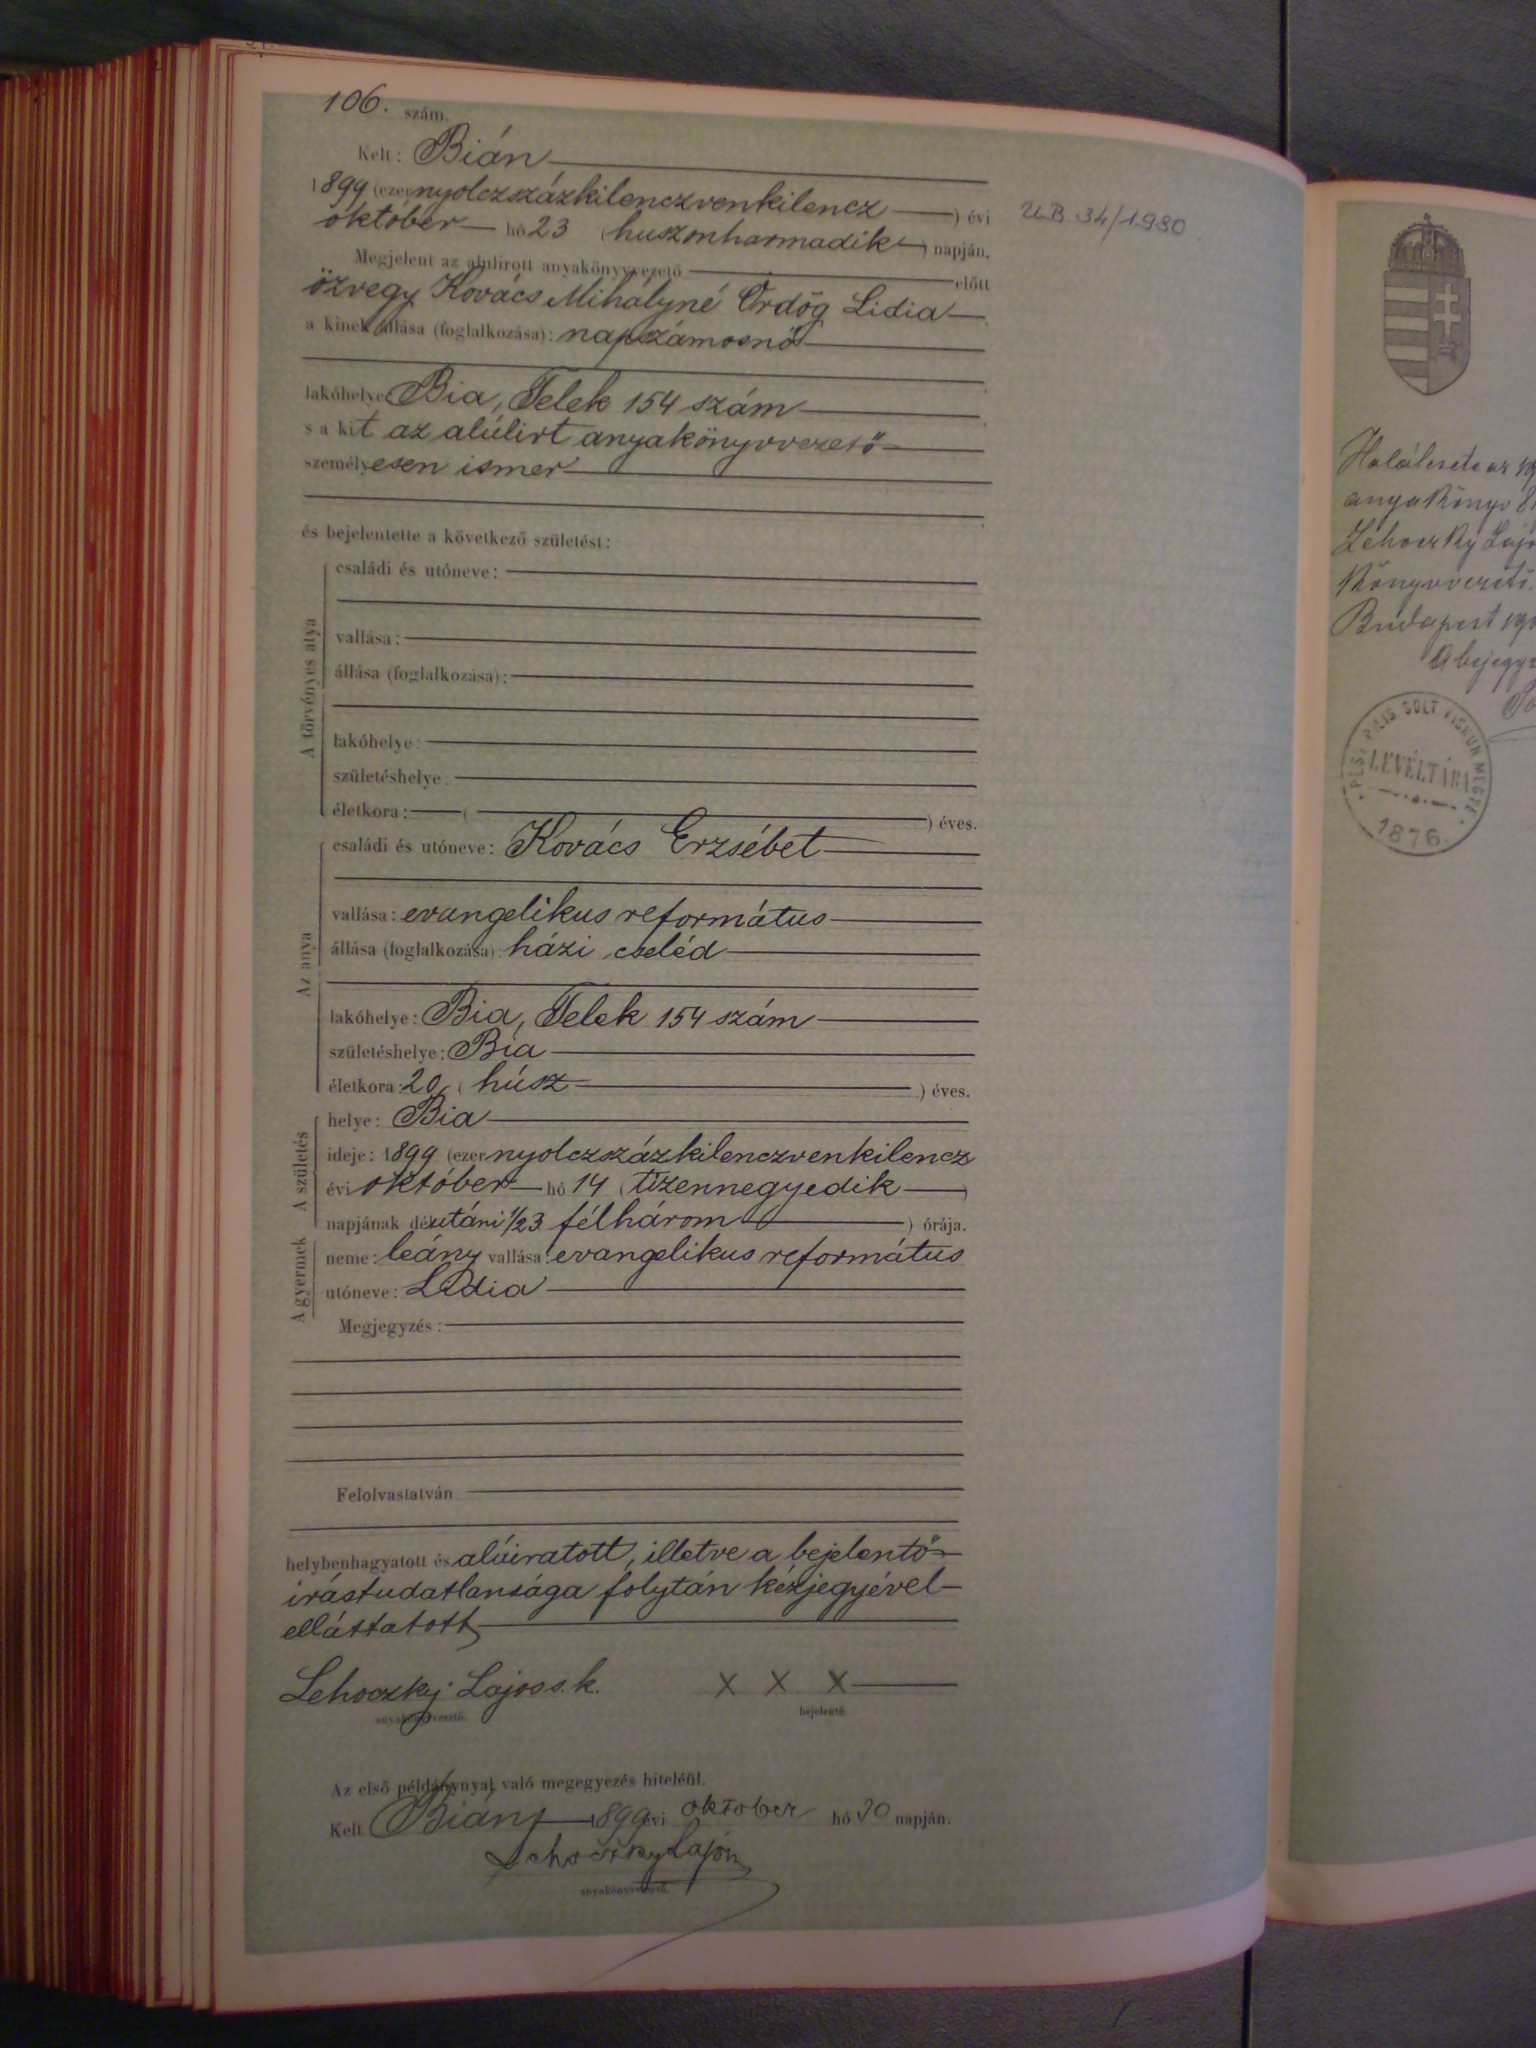 106. szám.
Kelt: Bián
1899 (ezernyolczszázkilenczvenkilencz ) évi
október hó 23 (huszonharmadik ) napján.
U.B. 34/1980
Megjelent az alulirott anyakönyvvezető előtt
özvegy Kovács Mihályné Ördög Lidia
a kinek állása (foglalkozása): napszámosnő
lakóhelye Bia, Telek 154 szám
s a kit az alúlirt anyakönyvvezető
személyesen ismer
és bejelentette a következő születést:
A törvényes atya
családi és utóneve:
vallása:
állása (foglalkozása):
lakóhelye:
születéshelye:
életkora: ( ) éves.
Az anya
családi és utóneve: Kovács Erzsébet
vallása: evangelikus református
állása (foglalkozása): házi cseléd
lakóhelye: Bia, Telek 154 szám
születéshelye: Bia
életkora: 20 ( húsz ) éves.
A születés
helye: Bia
ideje: 1899 (ezernyolczszázkilenczvenkilencz
évi október hó 14 (tizennegyedik )
napjának délutáni 1/23 félhárom ) órája.
A gyermek
neme: leány vallása: evangelikus református
utóneve: Lidia
Megjegyzés:
Felolvastatván
helybenhagyatott és alúiratott, illetve a bejelentő
irástudatlansága folytán kézjegyével
elláttatott
Lehoczky Lajos s.k. X X X
anyakönyvvezető. bejelentő.
Az első példánynyal való megegyezés hiteléül.
Kelt Bián, 1899 évi október hó 30 napján.
Lehoczky Lajos
anyakönyvvezető.
anyakönyv
Lehoczky Lajo
Budapest
A bejegyz
PEST PILIS SOLT KISKUN MEGYE
LEVÉLTÁRA
1876